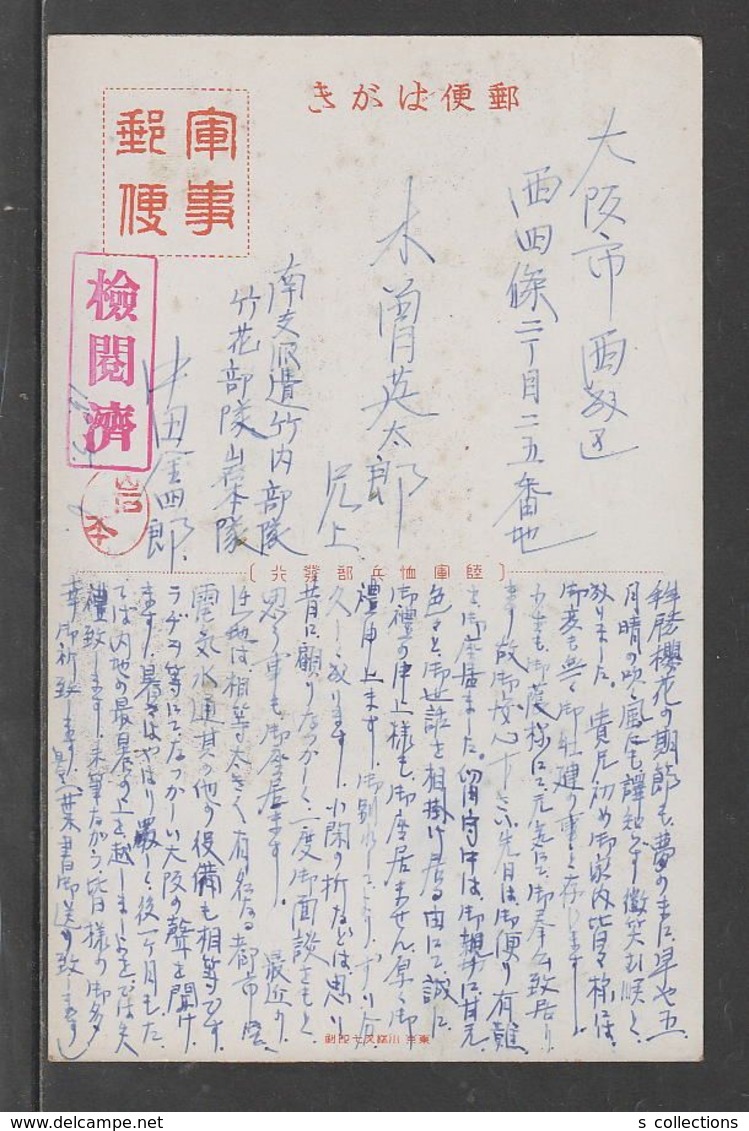 郵便はがき
軍事
郵便
檢閲濟
岩本
大阪市西
西四條二丁目二五番地
木曽英太郎
兄上
南支派遣竹内部隊
竹花部隊岩本隊
中田金四郎
〔陸軍恤兵部發行〕
櫻花の期節も夢のまに早や五
月晴の吹く風にも
なりました。貴兄初め御家内皆々様には
御変も無く御壮健の事と存じます
小生も御蔭様にて元気にて御奉公致居り
ます故御安心下さい先日は御便り有難
く御座居ました。留守中は御親切に
色々と御世話を相掛け居る由にて誠に
御禮の申上様も御座居ません厚く御
禮申上ます。御別れして
久しくなります。小閑の折などは思い
昔に顧りなつかしく一度御面談をもと
思う事も御座居ます。最近の
當地は相等大きく有名なる都市
電気水道其の他の設備も相等です
ラヂヲ等にてなつかしい大阪の聲を聞け
ます。暑さはやはり嚴しく後一ヶ月もた
てば内地の最暑の上を越しましょうでは失
禮致します。末筆ながら皆様の御多
幸御祈致します。葉書御送り致します
s collections